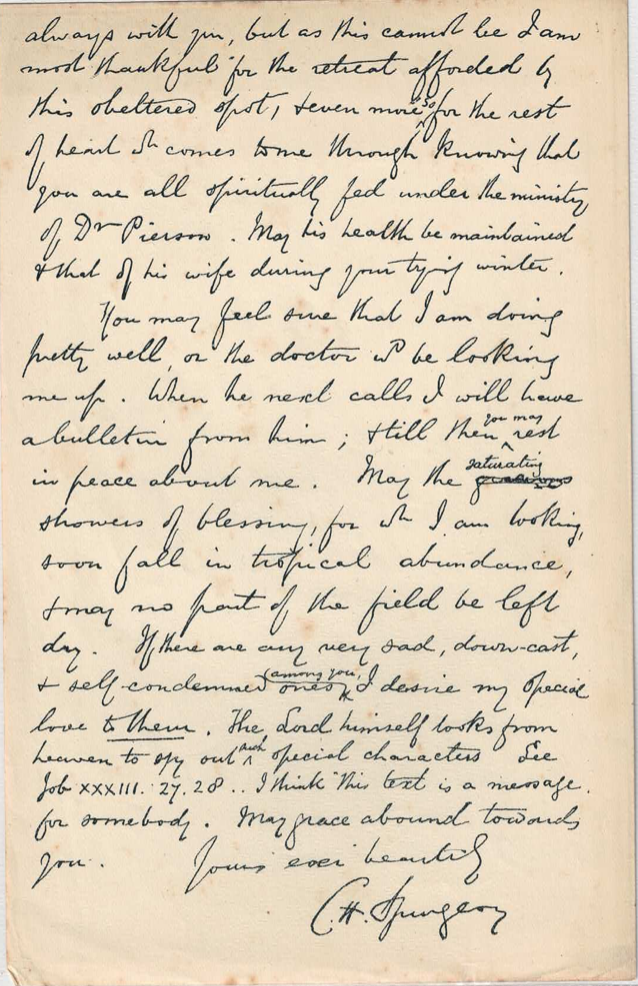 always with you, but as this cannot be I am
most thankful for the retreat afforded by
this sheltered spot, & even more so for the rest
of heart wh comes to me through knowing that
you are all spiritually fed under the ministry
of Dr Pierson. May his health be maintained
& that of his wife during your trying winter.
You may feel sure that I am doing
pretty well, or the doctor wd be looking
me up. When he next calls I will have
a bulletin from him; & till then you may rest
in peace about me. May the saturating gracious
showers of blessing, for wh I am looking,
soon fall in tropical abundance,
& may no part of the field be left
dry. If there are any very sad, down-cast,
& self-condemned ones (among you, I desire my special
love to them. The Lord himself looks from
heaven to spy out such special characters See
Job XXXIII. 27. 28.. I think this text is a message
for somebody. May grace abound towards
you. Yours ever heartily
C. H. Spurgeon